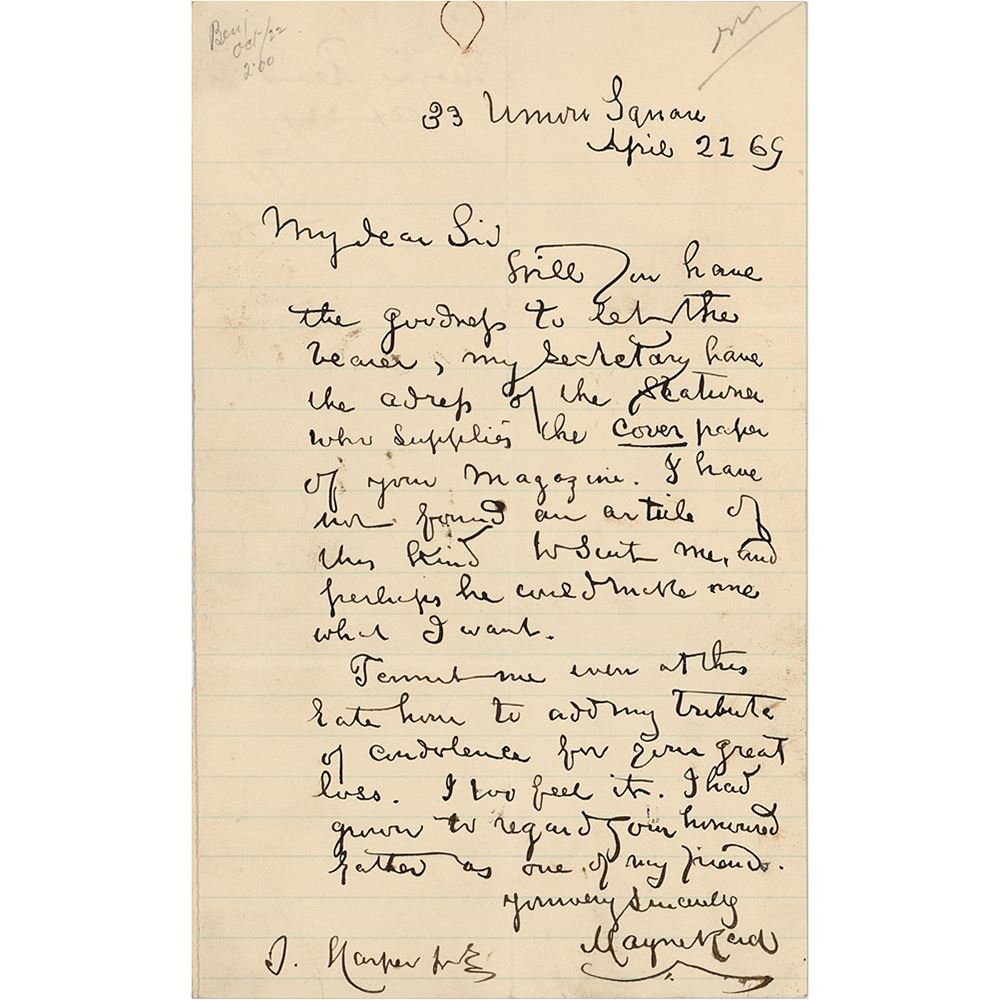 Benj
Oct/22
2.00
33 Union Square
April 21 69
My dear Sir
Will you have
the goodness to let the
bearer, my secretary have
the adress of the stationer
who supplies the cover paper
of your Magazine. I have
not found an article of
this kind to suit me, and
perhaps he could make me
what I want.
Permit me even at this
late hour to add my tribute
of condolence for your great
loss. I too feel it. I had
grown to regard your honoured
father as one of my friends.
Yours very sincerely
Mayne Reid
J. Harper jr